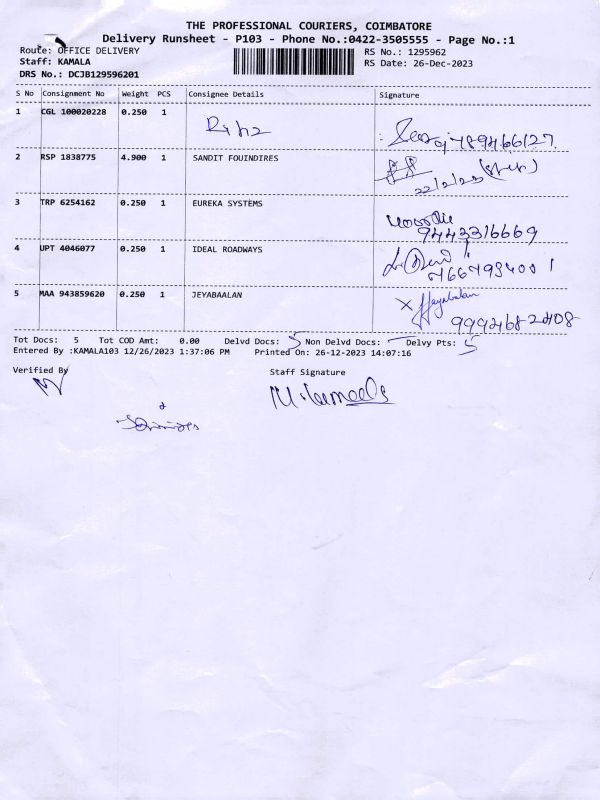 THE PROFESSIONAL COURIERS, COIMBATORE
Delivery Runsheet - P103 - Phone No.:0422-3505555 - Page No.:1
Route: OFFICE DELIVERY
RS No.: 1295962
Staff: KAMALA
RS Date: 26-Dec-2023
DRS No.: DCJB129596201
S No Consignment No Weight PCS Consignee Details Signature
1 CGL 100020228 0.250 1
2 RSP 1838775 4.900 1 SANDIT FOUINDIRES
3 TRP 6254162 0.250 1 EUREKA SYSTEMS
9443316669
4 UPT 4046077 0.250 1 IDEAL ROADWAYS
5 MAA 943859620 0.250 1 JEYABAALAN
Jeyabalan
Tot Docs: 5 Tot COD Amt: 0.00 Delvd Docs: 5 Non Delvd Docs: Delvy Pts: 5
Entered By :KAMALA103 12/26/2023 1:37:06 PM Printed On: 26-12-2023 14:07:16
Verified By
Staff Signature